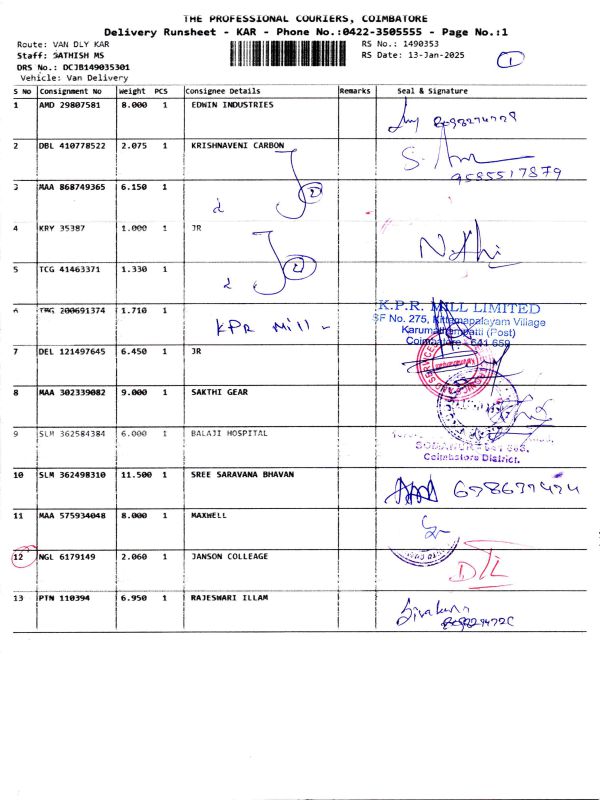 THE PROFESSIONAL COURIERS, COIMBATORE
Delivery Runsheet - KAR - Phone No.:0422-3505555 - Page No.:1
Route: VAN DLY KAR
RS No.: 1490353
Staff: SATHISH MS
RS Date: 13-Jan-2025
1
DRS No.: DCJB149035301
Vehicle: Van Delivery
S No Consignment No Weight PCS Consignee Details Remarks Seal & Signature
1 AMD 29807581 8.000 1 EDWIN INDUSTRIES
2 DBL 410778522 2.075 1 KRISHNAVENI CARBON
9585517879
3 MAA 868749365 6.150 1
2
4 KRY 35387 1.000 1 JR
5 TCG 41463371 1.330 1
2
6 TBG 200691374 1.710 1
KPR Mill -
K.P.R. MILL LIMITED
SF No. 275, Kittampalayam Village
Karumathampatti (Post)
Coimbatore - 641 659
7 DEL 121497645 6.450 1 JR
8 MAA 302339082 9.000 1 SAKTHI GEAR
9 SLM 362584384 6.000 1 BALAJI HOSPITAL
SOMANUR - 641 668.
Coimbatore District.
10 SLM 362498310 11.500 1 SREE SARAVANA BHAVAN
11 MAA 575934048 8.000 1 MAXWELL
12 NGL 6179149 2.060 1 JANSON COLLEAGE
13 PTN 110394 6.950 1 RAJESWARI ILLAM